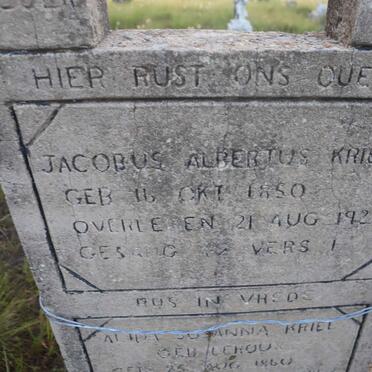 HIER RUST ONS OUE
JACOBUS ALBERTUS KRIE
GEB 16 OKT 1850
OVERLEDEN 21 AUG 192
GESANG VERS 1
RUS IN VREDE
ALIDA SUSANNA KRIEL
GEB LEROUX
GEB 25 AUG 1860